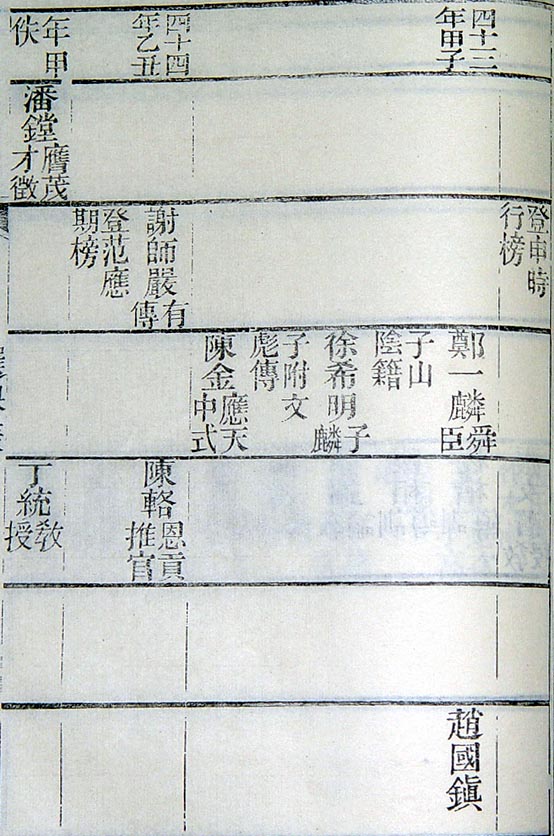 四十三
年甲子
四十四
年乙丑
年甲
佚
潘鏜膺茂
才徵
登申時
行榜
謝師嚴有
傳
登范應
期榜
鄭一麟舜
臣
子山
陰籍
徐希明子
麟
子附文
彪傳
陳金應天
中式
陳輅恩貢
推官
丁統教
授
趙國鎮